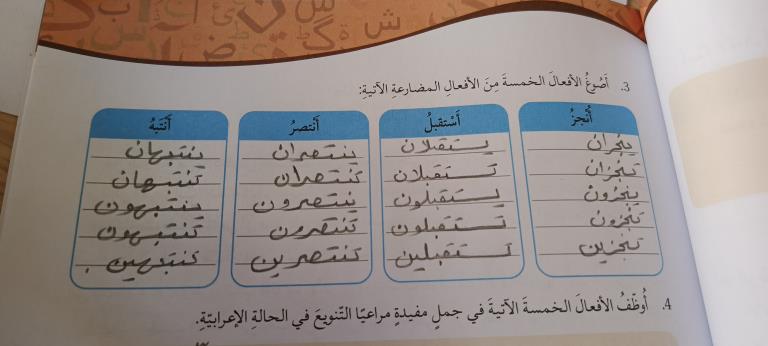 3. أَصُوغُ الأفعالَ الخمسةَ مِنَ الأفعالِ المضارعةِ الآتيةِ:
أُنْجِزُ أَسْتقبلُ أَنْتصرُ أَنْتَبَهُ
ينجزان يستقبلان ينتصران ينتبهان
تنجزان تستقبلان تنتصران تنتبهان
ينجزون يستقبلون ينتصرون ينتبهون
تنجزون تستقبلون تنتصرون تنتبهون
تنجزين تستقبلين تنتصرين تنتبهين
4. أُوظِّفُ الأفعالَ الخمسةَ الآتيةَ في جملٍ مفيدةٍ مراعيًا التّنويعَ في الحالةِ الإعرابيّةِ.